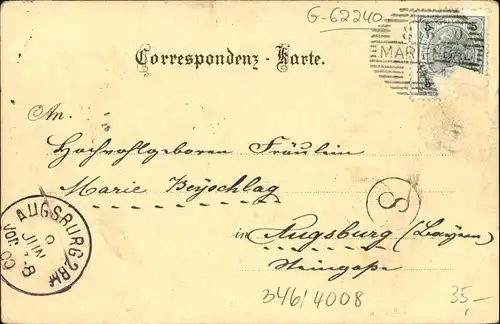 G-62240
5 5
MARIENBA
Correspondenz - Karte.
An
Hochwohlgeboren Fräulein
Marie Beyschlag
S
in Augsburg (Bayern)
Steingaße
AUGSBURG 2.Bhf
JUN
Vor.
346/4008
35,-